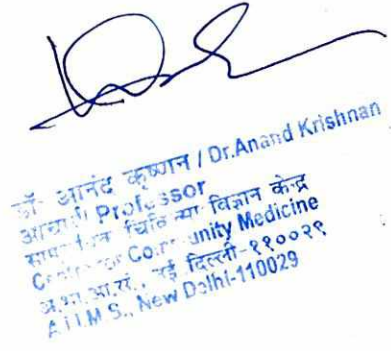 डॉ॰ आनंद कृष्णन / Dr.Anand Krishnan
आचार्य / Professor
सामुदायिक चिकित्सा विज्ञान केन्द्र
Centre for Community Medicine
अ.भा.आ.सं., नई दिल्ली-११००२९
A.I.I.M.S., New Delhi-110029